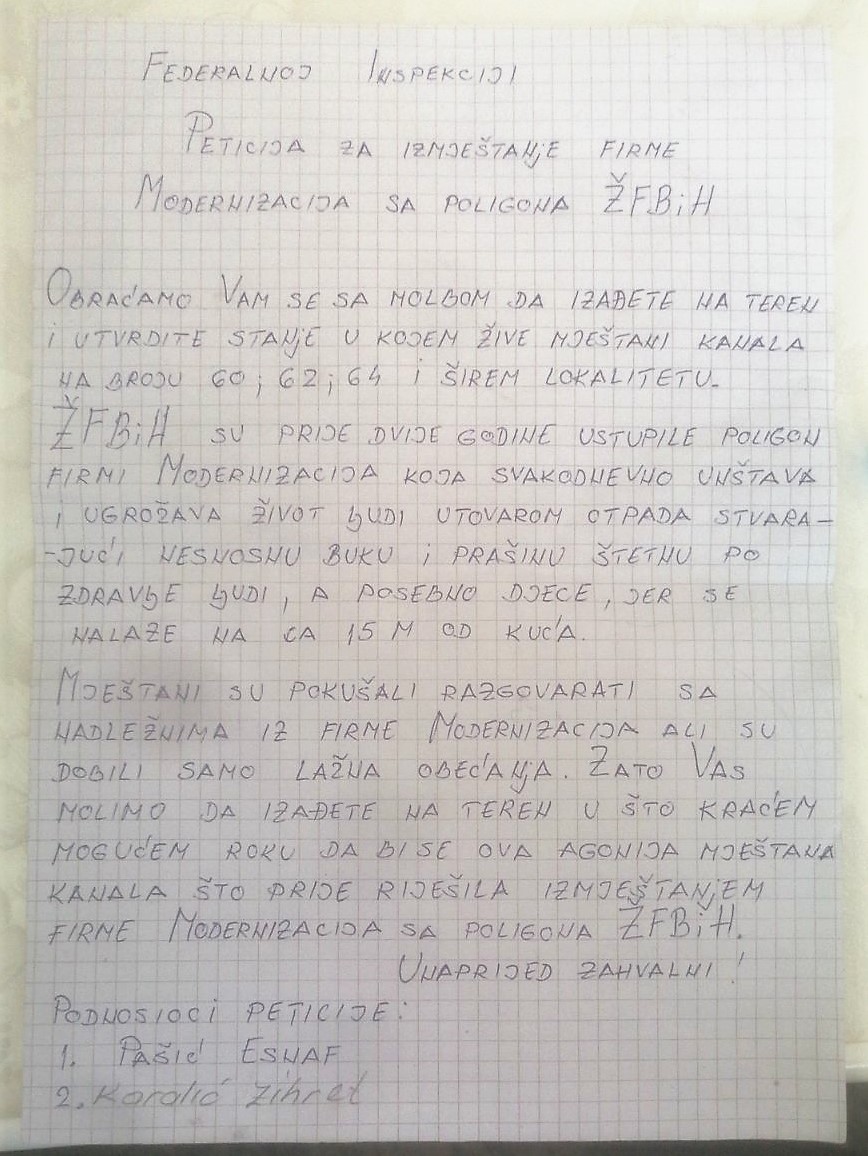 FEDERALNOJ INSPEKCIJI
PETICIJA ZA IZMJEŠTANJE FIRME
MODERNIZACIJA SA POLIGONA ŽFBiH
OBRAĆAMO VAM SE SA MOLBOM DA IZAĐETE NA TEREN
i UTVRDITE STANJE U KOJEM ŽIVE MJEŠTANI KANALA
NA BROJU 60; 62; 64 i ŠIREM LOKALITETU.
ŽFBiH SU PRIJE DVIJE GODINE USTUPILE POLIGON
FIRMI MODERNIZACIJA KOJA SVAKODNEVNO UNŠTAVA
i UGROŽAVA ŽIVOT LJUDI UTOVAROM OTPADA STVARA-
-JUĆI NESNOSNU BUKU i PRAŠINU ŠTETNU PO
ZDRAVLJE LJUDI, A POSEBNO DJECE, JER SE
NALAZE NA CA 15 M OD KUĆA.
MJEŠTANI SU POKUŠALI RAZGOVARATI SA
NADLEŽNIMA IZ FIRME MODERNIZACIJA ALI SU
DOBILI SAMO LAŽNA OBEĆANJA. ZATO VAS
MOLIMO DA IZAĐETE NA TEREN U ŠTO KRAĆEM
MOGUĆEM ROKU DA BI SE OVA AGONIJA MJEŠTANA
KANALA ŠTO PRIJE RIJEŠILA IZMJEŠTANJEM
FIRME MODERNIZACIJA SA POLIGONA ŽFBiH.
UNAPRIJED ZAHVALNI!
PODNOSIOCI PETICIJE:
1. PAŠIĆ ESNAF
2. Koralić Zihret